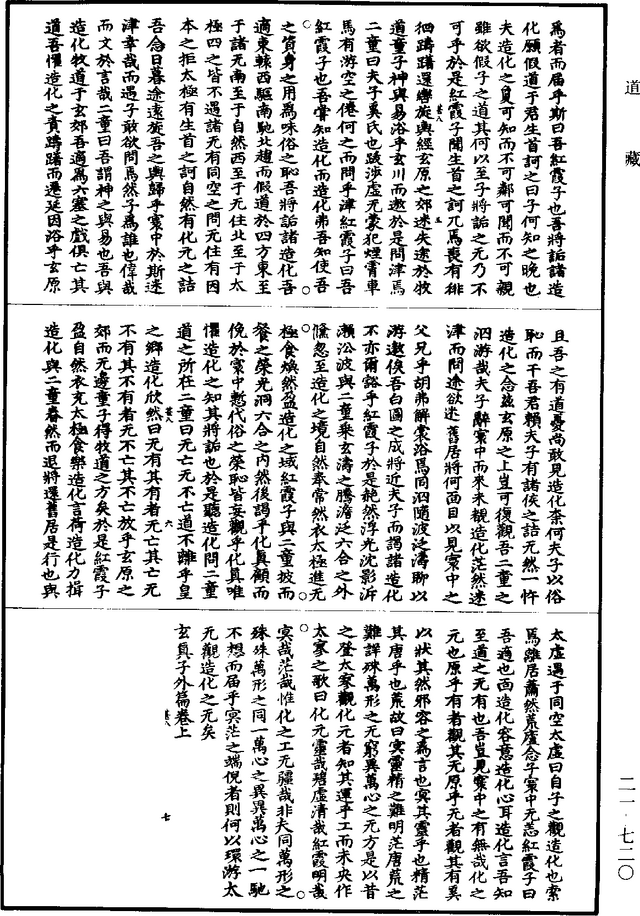 道藏
爲者而屆乎斯曰吾紅霞子也吾將詣諸造
化願假道于君生首訶之曰子何知之晚也
夫造化之㚆可知而不可鄰可聞而不可覩
雖欲假子之道其何以至子將詣之无乃不
可乎於是紅霞子聞生首之訶兀焉喪有徘
徊躊躇還轡旋輿經玄原之郊迷失途於牧
道童子神與易浴乎玄川而遨於是問津焉
二童曰夫子奚氏也跋渉虛无蒙犯煙霄車
馬有游空之倦何之而問乎津紅霞子曰吾
紅霞子也吾甞知造化而造化弗吾知使吾
之質身之用爲味俗之恥吾將詣諸造化吾
適東轅西驅南馳北趨而假道於四方東至
于諸无南至于自然西至于无住北至于太
極四之皆不遇諸无有同空之問无住有因
本之拒太極有生首之訶自然有化元之詰
吾念日暮途遠旋吾之輿歸乎寰中於斯迷
津幸哉而遇子敢欲問焉然子爲誰也偉哉
而文於言哉二童曰吾謂神之與易也吾與
造化牧道于玄郊吾適爲六塞之戲俱亡其
道吾懼造化之責躊躇而遷延因浴乎玄原
且吾之有道憂尚敢見造化柰何夫子以俗
恥而干吾君賴夫子有諸侯之詰无然一忤
造化之念兹玄原之上豈可復觀吾二童之
泗游哉夫子辭寰中而來未覩造化茫然迷
津而問途欲迷舊居將何面目以見寰中之
父兄乎胡弗解裳浴焉同泗隨波泛濤聊以
游遨俟吾白圖之成將近夫子而謁諸造化
不亦爾谿乎紅霞子於是艴然浮光沈影泝
瀨淞波與二童乘玄濤之騰澹泛六合之外
儵忽至造化之境自然奉常然衣太極進无
極食煥然盈造化之域紅霞子與二童披而
餐之榮光洞六合之內然後謁乎化真顧而
俛於寰中慙代俗之榮恥皆妄觀乎化真唯
懼造化之知其將詬也於是聽造化問二童
道之所在二童曰无亡无不亡道不離乎皇
之鄉造化欣然曰无有其有者无亡其亡无
不有其不有者无不亡其不亡放乎玄原之
郊而无邊童子得牧道之方矣於是紅霞子
盈自然衣充太極食樂造化言荷造化力揖
造化與二童眷然而退將還舊居是行也與
太虛遇于同空太虛曰自子之觀造化也索
焉離居蕭然荒廬念子寰中无恙紅霞子曰
吾適也面造化容意造化心耳造化言吾知
至道之无有也吾豈見寰中之有無哉化之
元也原乎有者觀其无原乎无者觀其有奚
以狀其然邪容之爲言也寞其靈乎也精茫
其唐乎也荒故曰寞靈精之難明茫唐荒之
難詳殊萬形之无窮異萬心之无方是以昔
之登太寒觀化元者知其運乎工而未央作
太寒之歌曰化元靈哉碧虛清哉紅霞明哉
冥哉茫哉惟化之工无疆哉非夫同萬形之
殊殊萬形之同一萬心之異異萬心之一馳
不想而屆乎冥茫之端倪者則何以環游太
无觀造化之无矣
玄真子外篇卷上
甚八
五
甚八
六
甚八
七
二一·七二〇